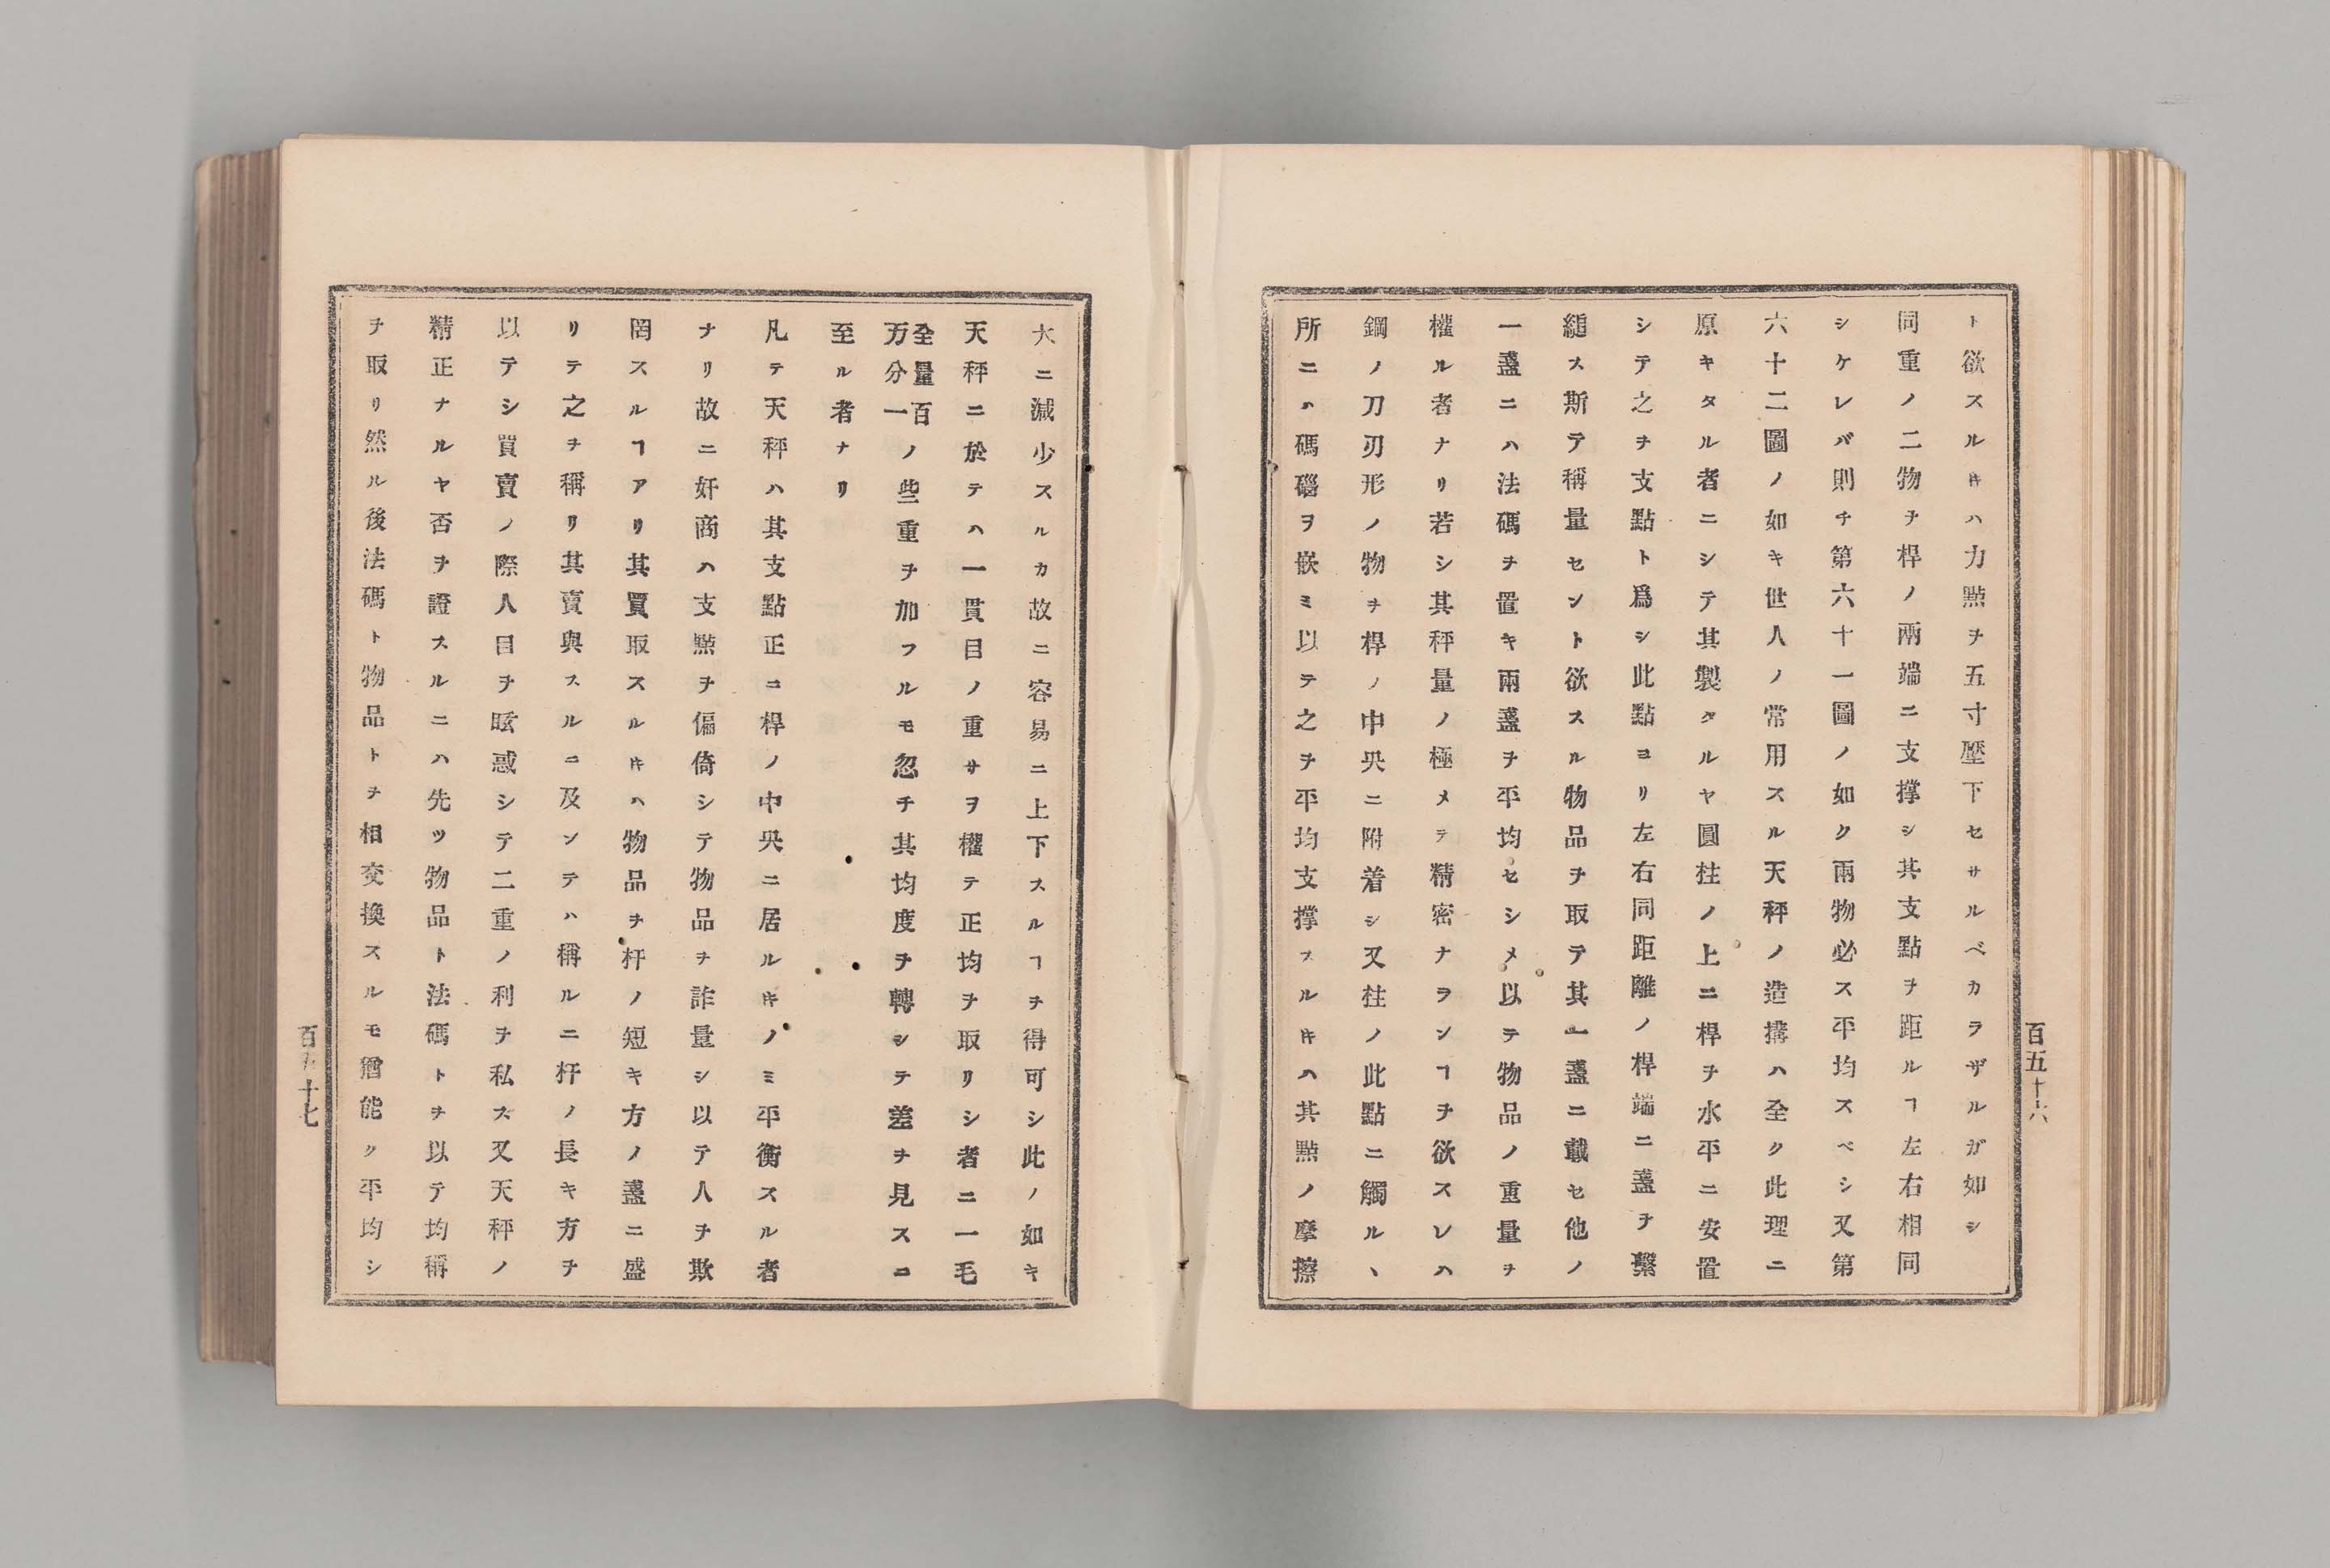 ト欲スルキハ力點ヲ五寸壓下セサルベカラザルガ如シ
同重ノ二物ヲ桿ノ兩端ニ支撑シ其支點ヲ距ルヿ左右相同
シケレバ則チ第六十一圖ノ如ク兩物必ス平均スベシ又第
六十二圖ノ如キ世人ノ常用スル天秤ノ造搆ハ全ク此理ニ
原キタル者ニシテ其製タルヤ圓柱ノ上ニ桿ヲ水平ニ安置
シテ之ヲ支點ト爲シ此點ヨリ左右同距離ノ桿端ニ盞ヲ繫
縋ス斯テ稱量セント欲スル物品ヲ取テ其一盞ニ載セ他ノ
一盞ニハ法碼ヲ置キ兩盞ヲ平均セシメ以テ物品ノ重量ヲ
權ル者ナリ若シ其秤量ノ極メテ精密ナランヿヲ欲スレハ
鋼ノ刀刃形ノ物ヲ桿ノ中央ニ附着シ又柱ノ此點ニ觸ルヽ
所ニハ碼碯ヲ嵌ミ以テ之ヲ平均支撑スルキハ其點ノ摩擦
百五十六
大ニ減少スルカ故ニ容易ニ上下スルヿヲ得可シ此ノ如キ
天秤ニ於テハ一貫目ノ重サヲ權テ正均ヲ取リシ者ニ一毛
全量百万分一ノ些重ヲ加フルモ忽チ其均度ヲ轉シテ差ヲ見スニ
至ル者ナリ
凡テ天秤ハ其支點正ニ桿ノ中央ニ居ルキノミ平衡スル者
ナリ故ニ奸商ハ支點ヲ偏倚シテ物品ヲ詐量シ以テ人ヲ欺
罔スルヿアリ其買取スルキハ物品ヲ杆ノ短キ方ノ盞ニ盛
リテ之ヲ稱リ其賣與スルニ及ンテハ稱ルニ杆ノ長キ方ヲ
以テシ買賣ノ際人目ヲ眩惑シテ二重ノ利ヲ私ス又天秤ノ
精正ナルヤ否ヲ證スルニハ先ツ物品ト法碼トヲ以テ均稱
ヲ取リ然ル後法碼ト物品トヲ相交換スルモ尙能ク平均シ
百五十七